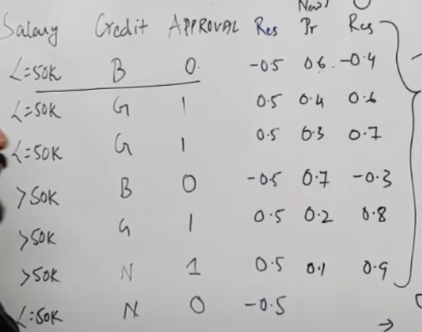 New
Salary Credit APPROVAL Res Pr Res
<=50K B 0 -0.5 0.6 -0.4
<=50K G 1 0.5 0.4 0.6
<=50K G 1 0.5 0.3 0.7
>50K B 0 -0.5 0.7 -0.3
>50K G 1 0.5 0.2 0.8
>50K N 1 0.5 0.1 0.9
<=50K N 0 -0.5